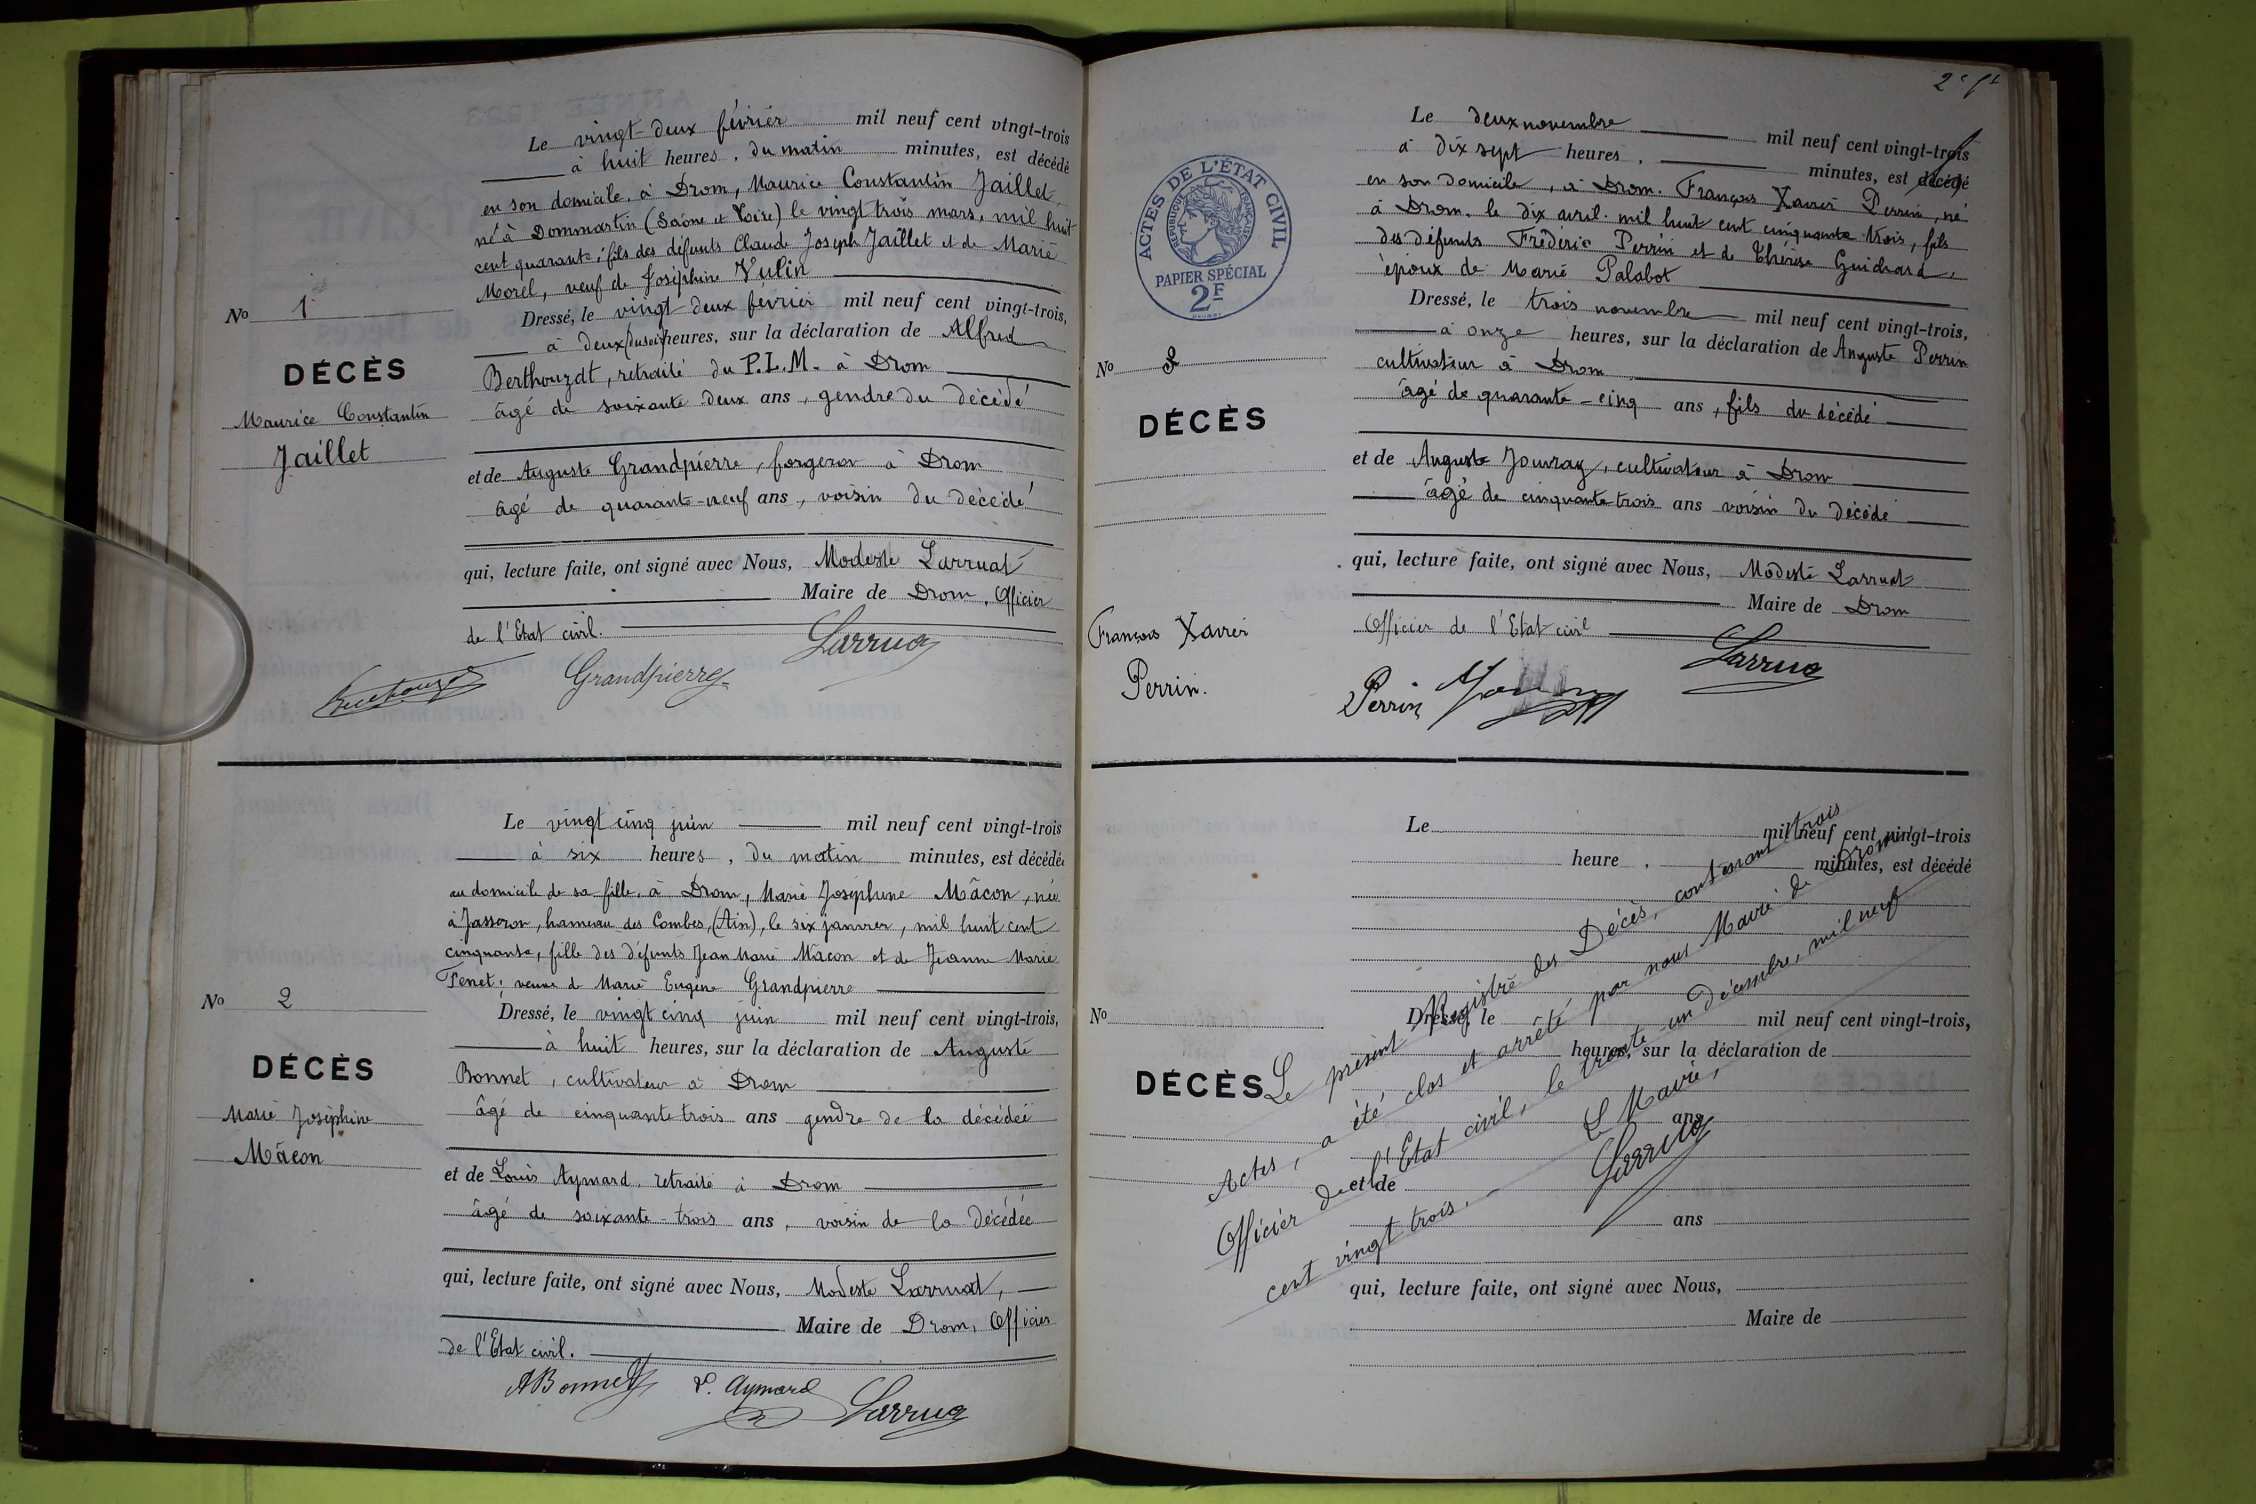 Le vingt-deux février mil neuf cent vingt-trois
à huit heures, du matin minutes, est décédé
en son domicile, à Drom, Maurice Constantin Jaillet,
né à Dommartin (Saône et Loire) le vingt trois mars, mil huit
cent quarante, fils des défunts Claude Joseph Jaillet et de Marie
Morel, veuf de Joséphine Vulin
No 1
DÉCÈS
Maurice Constantin
Jaillet
Dressé, le vingt deux février mil neuf cent vingt-trois,
à deux (du soir) heures, sur la déclaration de Alfred
Berthouzat, retraité du P.L.M. à Drom
âgé de soixante deux ans, gendre du décédé
et de Auguste Grandpierre, forgeron à Drom
âgé de quarante-neuf ans, voisin du décédé
qui, lecture faite, ont signé avec Nous, Modeste Larruat
Maire de Drom, Officier
de l'Etat civil.
Grandpierre Larruat
Le vingt cinq juin mil neuf cent vingt-trois
à six heures, du matin minutes, est décédée
au domicile de sa fille, à Drom, Marie Joséphine Mâcon, née
à Jasseron, hameau des Combes, (Ain), le six janvier, mil huit cent
cinquante, fille des défunts Jean Marie Mâcon et de Jeanne Marie
Fenet, veuve d Marie Eugène Grandpierre
No 2
DÉCÈS
Marie Joséphine
Mâcon
Dressé, le vingt cinq juin mil neuf cent vingt-trois,
à huit heures, sur la déclaration de Auguste
Bonnet, cultivateur à Drom
âgé de cinquante trois ans gendre de la décédée
et de Louis Aymard, retraité à Drom
âgé de soixante-trois ans, voisin de la Décédée
qui, lecture faite, ont signé avec Nous, Modeste Larruat,
Maire de Drom, Officier
de l'Etat civil.
ABonnet L. Aymard Larruat
ACTES DE L'ÉTAT CIVIL
RÉPUBLIQUE FRANÇAISE
PAPIER SPÉCIAL
2F
Le deux novembre mil neuf cent vingt-trois
à dix sept heures, minutes, est décédé
en son domicile, à Drom. François Xavier Perrin, né
à Drom, le dix avril mil huit cent cinquante trois, fils
des défunts Frédéric Perrin et de Thérèse Guichard,
époux de Marie Palabot
No 3
DÉCÈS
François Xavier
Perrin.
Dressé, le trois novembre mil neuf cent vingt-trois,
à onze heures, sur la déclaration de Auguste Perrin
cultivateur à Drom
âgé de quarante-cinq ans, fils du décédé
et de Auguste Jouvray, cultivateur à Drom
âgé de cinquante trois ans voisin du décédé
qui, lecture faite, ont signé avec Nous, Modeste Larruat
Maire de Drom
Officier de l'Etat civil
Perrin Larruat
Le mil neuf cent vingt-trois
heure, minutes, est décédé
No
DÉCÈS
Dressé, le mil neuf cent vingt-trois,
heures, sur la déclaration de
ans
et de
ans
qui, lecture faite, ont signé avec Nous,
Maire de
Le présent Registre des Décès, contenant trois
Actes, a été clos et arrêté par nous Maire de Drom,
Officier de l'Etat civil, le trente-un Décembre, mil neuf
cent vingt trois.
Le Maire,
Larruat